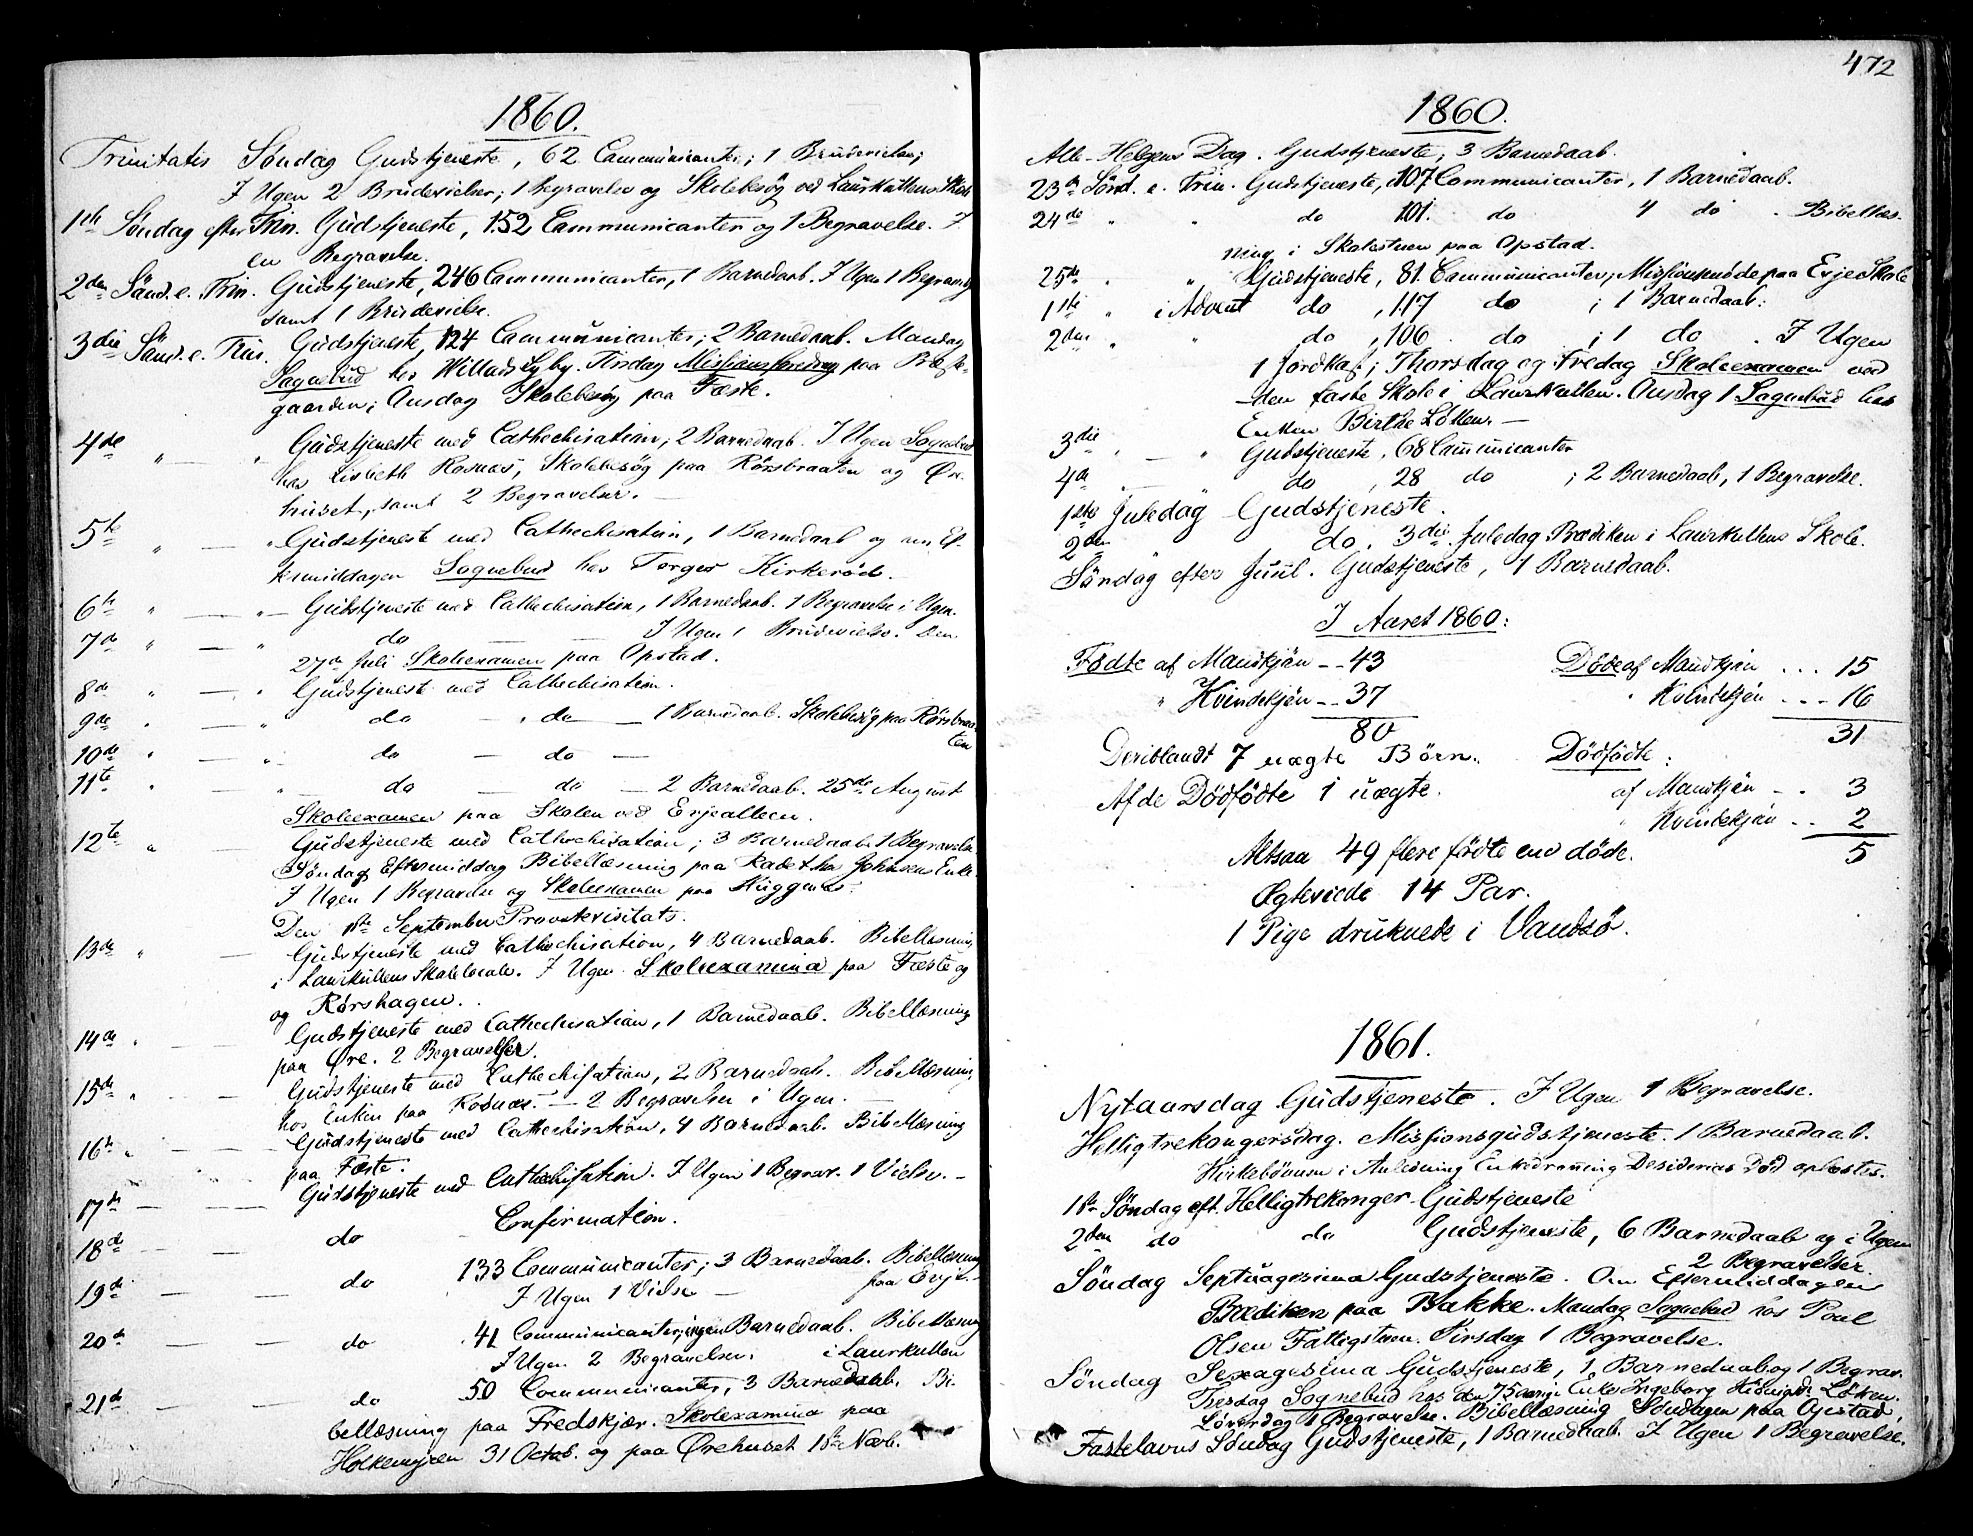 1860.
Trinitatis Søndag Gudstjeneste, 62 Communicanter; 1 Brudevielse;
I Ugen 2 Brudevielser; 1 Begravelse og Skolebesøg ved Laurkullens Skole
1ste Søndag efter Trin. Gudstjeneste, 152 Communicanter og 1 Begravelse. I
en Begravelse.
2den Sønd. e. Trin. Gudstjeneste, 246 Communicanter, 1 Barnedaab. I Ugen 1 Begravelse
samt 1 Brudevielse.
3die Sønd. e. Trin. Gudstjeneste, 124 Communicanter; 2 Barnedaab. Mandag
Sognebud hos Willads Lyby. Tirsdag Missionsforening paa Præste-
gaarden; Onsdag Skolebesøg paa Fæste.
4de " — " Gudstjeneste med Cathechisation; 2 Barnedaab. I Ugen Sognebud
hos Lisbeth Rosnæs, Skolebesøg paa Rørsbraaten og Øre-
huset, samt 2 Begravelser. —
5te " — " Gudstjeneste med Cathechisation, 1 Barnedaab og om Ef-
termiddagen Sognebud hos Torger Kirkerød.
6te " — " — Gudstjeneste med Cathechisation, 1 Barnedaab. 1 Begravelse i Ugen.
7de " — " do — — I Ugen 1 Brudevielse. Den
27de Juli Skoleexamen paa Opstad.
8de " — " Gudstjeneste med Cathechisation.
9de " — " do — " do — 1 Barnedaab. Skolebesøg paa Rørsbraa-
ten
10de " — " do — do —
11te " — " — do — do — 2 Barnedaab. 25de August
Skoleexamen paa Skolen ved Evjealleen.
12te " — Gudstjeneste med Cathechisation; 3 Barnedaab 1 Begravelse
Søndag Eftermiddag Bibellæsning paa Johnsens Enke.
I Ugen 1 Begravelse og Skoleexamen paa Huggenæs.
Den 1ste September Provstevisitats.
13de " — Gudstjeneste med Cathechisation, 4 Barnedaab. Bibellæsning
i Laurkullens Skolelocale. I Ugen Skoleexamina paa Fæste og
og Rørshagen.
14de " — — Gudstjeneste med Cathechisation, 1 Barnedaab. Bibellæsning
paa Øre. 2 Begravelser.
15de " — — Gudstjeneste med Cathechisation, 2 Barnedaab. Bibellæsning
hos Enken paa Rosnæs. — 2 Begravelser i Ugen. —
16de " — — Gudstjeneste med Cathechisation, 4 Barnedaab. Bibellæsning
paa Fæste.
17de — — — Gudstjeneste med Cathechisation. I Ugen 1 Begrav. 1 Vielse. —
18de — — do — Confirmation.
19de — — do 133 Communicanter; 3 Barnedaab. Bibellæsning
I Ugen 1 Vielse — paa Evje. —
20de — — do 41 Communicanter, ingen Barnedaab. Bibellæsning
I Ugen 2 Begravelser. i Laurkullen
21de — — do 50 Communicanter, 3 Barnedaab. Bi-
bellæsning paa Fredskjær. Skoleexamina paa
Holkemyren 31 Octob. og paa Ørehuset 1ste Novb.
472
1860.
Alle-Helgens Dag. Gudstjeneste, 3 Barnedaab.
23de Sønd. e. Trin. Gudstjeneste, 107 Communicanter, 1 Barnedaab.
24de " " do 101. do 4 do. Bibellæs-
ning i Skolestuen paa Opstad.
25de " " Gudstjeneste, 81 Communicanter; Missionsmøde paa Evje Skole
1ste " i Advent do , 117 do ; 1 Barnedaab.
2den " " do , 106 do ; 1 do. I Ugen
1 Jordkast; Thorsdag og Fredag Skoleexamen ved
den faste Skole i Laurkullen. Onsdag 1 Sognebud hos
Enken Birthe Løkken. —
3die " — " Gudstjeneste, 68 Communicanter
4de — " do , 28 do ; 2 Barnedaab, 1 Begravelse.
1ste Juledag Gudstjeneste.
2den " do. 3die Juledag Prædiken i Laurkullens Skole.
Søndag efter Juul. Gudstjeneste, 1 Barnedaab.
I Aaret 1860:
Fødte af Mandkjøn -- 43 Døde af Mandkjøn ... 15
" Kvindekjøn -- 37 " Kvindekjøn ... 16
80 31
Deriblandt 7 uægte Børn. Dødfødte:
Af de Dødfødte 1 uægte. af Mandkjøn - . 3
" Kvindekjøn . . 2
Altsaa 49 flere fødte end døde. 5
Ægteviede 14 Par.
1 Pige druknede i Vandsø.
1861.
Nytaarsdag Gudstjeneste. I Ugen 1 Begravelse.
Helligtrekongersdag. Missionsgudstjeneste. 1 Barnedaab.
Kirkebønnen i Anledning Enkedronning Desiderias Død oplæstes.
1ste Søndag eft. Helligtrekonger Gudstjeneste
2den do do Gudstjeneste, 6 Barnedaab og i Ugen
2 Begravelser
Søndag Septuagesima Gudstjeneste. Om Eftermiddagen
Prædiken paa Bakke. Mandag Sognebud hos Poul
Olsen Fattigstuen. Tirsdag 1 Begravelse.
Søndag Sexagesima Gudstjeneste, 1 Barnedaab og 1 Begrav.
Tirsdag Sognebud hos den 75aarige Enke Ingeborg Løken.
Løverdag 1 Begravelse. Bibellæsning Søndagen paa Opstad.
Fastelavns Søndag Gudstjeneste, 1 Barnedaab. I Ugen 1 Begravelse.